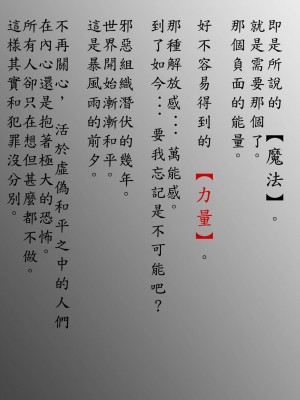 即是所說的【魔法】。
就是需要那個了。
那個負面的能量。
好不容易得到的【力量】。
那種解放感…萬能感。
到了如今…要我忘記是不可能吧？
邪惡組織潛伏的幾年。
世界開始漸漸和平。
這是暴風雨的前夕。
不再關心，活於虛偽和平之中的人們
在內心還是抱著極大的恐怖。
所有人卻只在想但甚麼都不做。
這樣其實和犯罪沒分別。